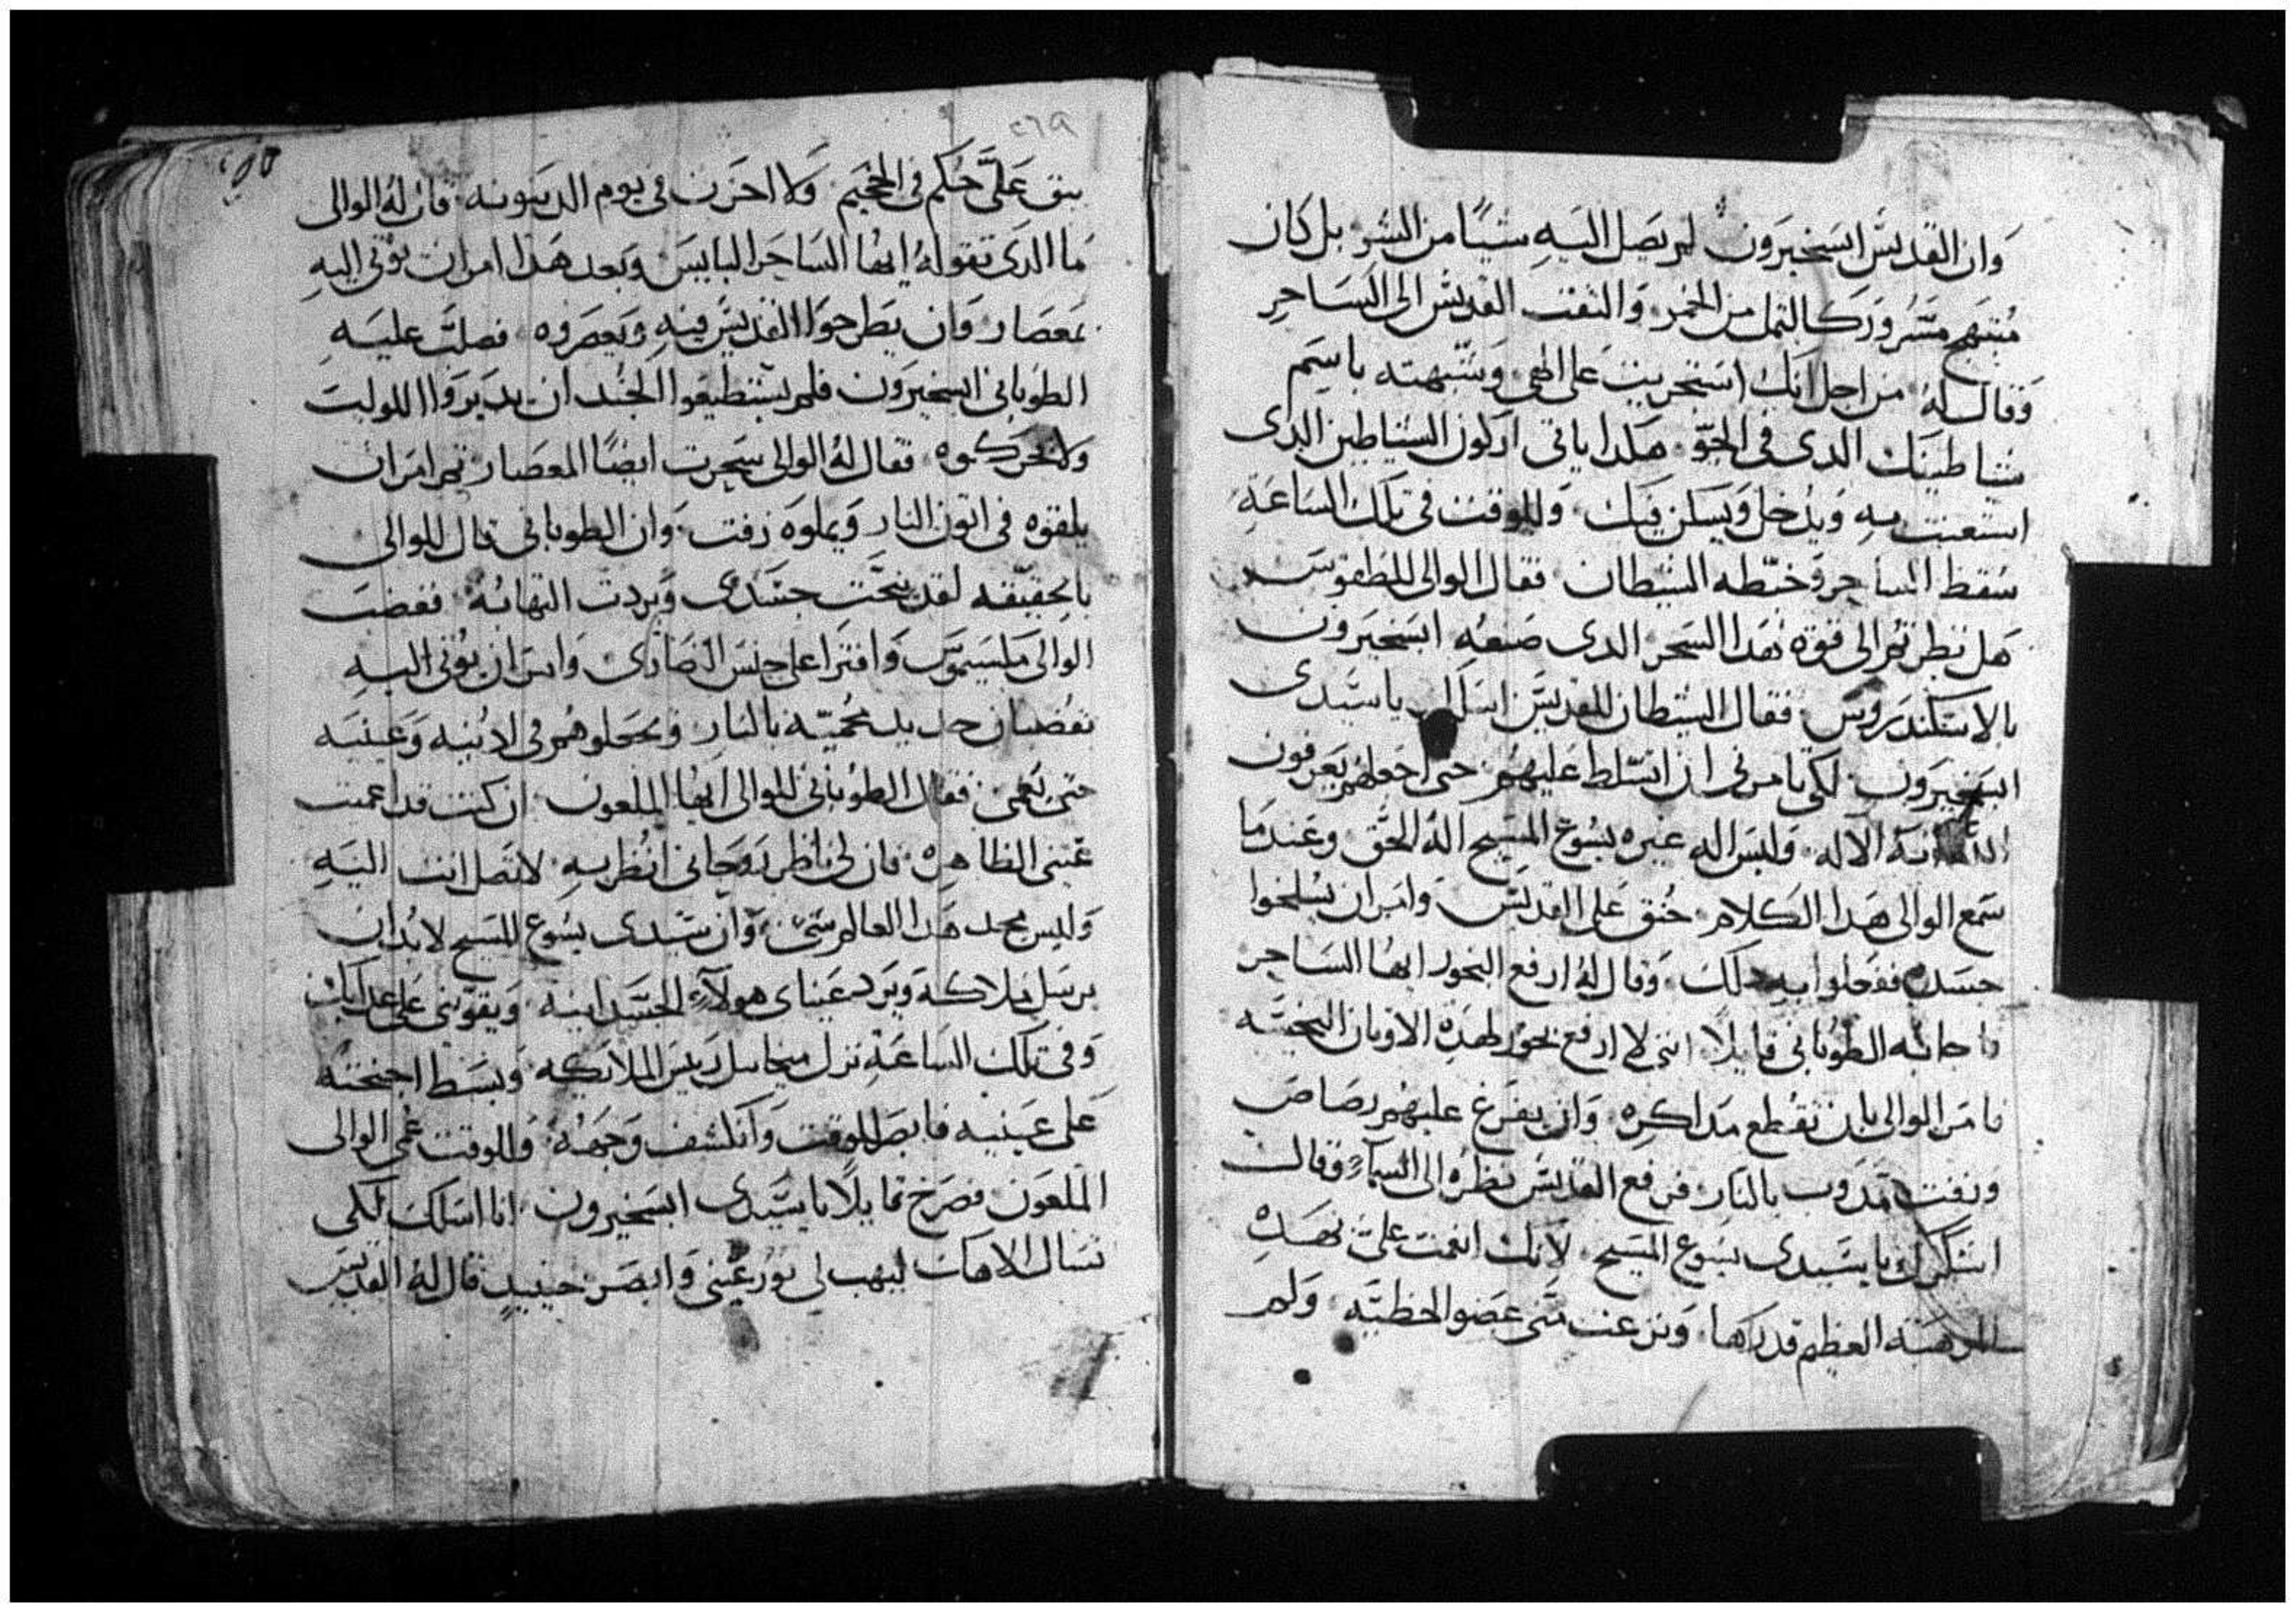 وان القديس ابسخيرون لم يصل اليه شيا من الشر بل كان
مبتهج مسرور كالثمل من الخمر والتفت القديس الى الساحر
وقال له من اجل انك استجريت على الهي وشبهته باسم
شياطينك الدى فى الجو هكدا ياتى اركون الشياطين الدى
استعنت به ويدخل ويسكن فيك وللوقت فى تلك الساعة
سقط الساحر وخبطه الشيطان فقال الوالى للطقوس
هل نظرتم الى قوة هدا السحر الدى صنعه ابسخيرون
بالاسكندروس فقال الشيطان للقديس اسلك ياسيدى
ابسخيرون لكى تامرنى ان اتسلط عليهم حتى اجعلهم يعرفون
الاله وليس اله غيره يسوع المسيح اله الحق وعندما
سمع الوالى هدا الكلام حنق على القديس وامر ان يسلخوا
جسده ففعلوا به دلك وقال له ارفع البخور ايها الساحر
فاجابه الطوبانى قايلا اننى لا ارفع بخور لهده الاوتان النجسه
فامر الوالى بان تقطع مداكره وان يفرغ عليهم رصاص
وزفت مدوب بالنار فرفع القديس نظره الى السماء وقال
اشكرك ياسيدى يسوع المسيح لانك انعمت على بهده
العظيم قدرها ونزعت منى عضو الخطيه ولم
٢٦٩
يبق على حكم فى الجحيم ولا احزن فى يوم الدينونه قال له الوالى
ما الدى تقوله ايها الساحر البايس وبعد هدا امر ان يوتى اليه
بمعصار وان يطرحوا القديس فيه ويعصروه فصلب عليه
الطوبانى ابسخيرون فلم يستطيعوا الجند ان يديروا اللولب
ولا يحركوه فقال له الوالى سحرت ايضا المعصار تم امر ان
يلقوه فى اتون النار ويملوه زفت وان الطوبانى قال للوالى
بالحقيقه لقد نيحت جسدى وبردت التهابه فغضب
الوالى مكسيموس وافترا على جنس النصارى وامر ان يوتى اليه
بقضبان حديد محميه بالنار ويجعلوهم فى ادنيه وعينيه
حتى يعمى فقال الطوبانى للوالى ايها الملعون ان كنت قد اعميت
عينى الظاهره فان لى ناظر روحانى انظر به لا تصل انت اليه
وليس مجد هدا العالم شى وان سيدى يسوع المسيح لابد ان
يرسل ملاكه ويرد عيناى هولآء الجسدانيه ويقوينى على عدابك
وفى تلك الساعة نزل ميخاييل رييس الملايكه وبسط اجنحته
على عينيه فابصر للوقت وانكشف وجهه وللوقت عمى الوالى
الملعون فصرخ قايلا ياسيدى ابسخيرون انا اسلك لكى
تسال الاهك ليهب لى نور عينى وابصر حينيد قال له القديس